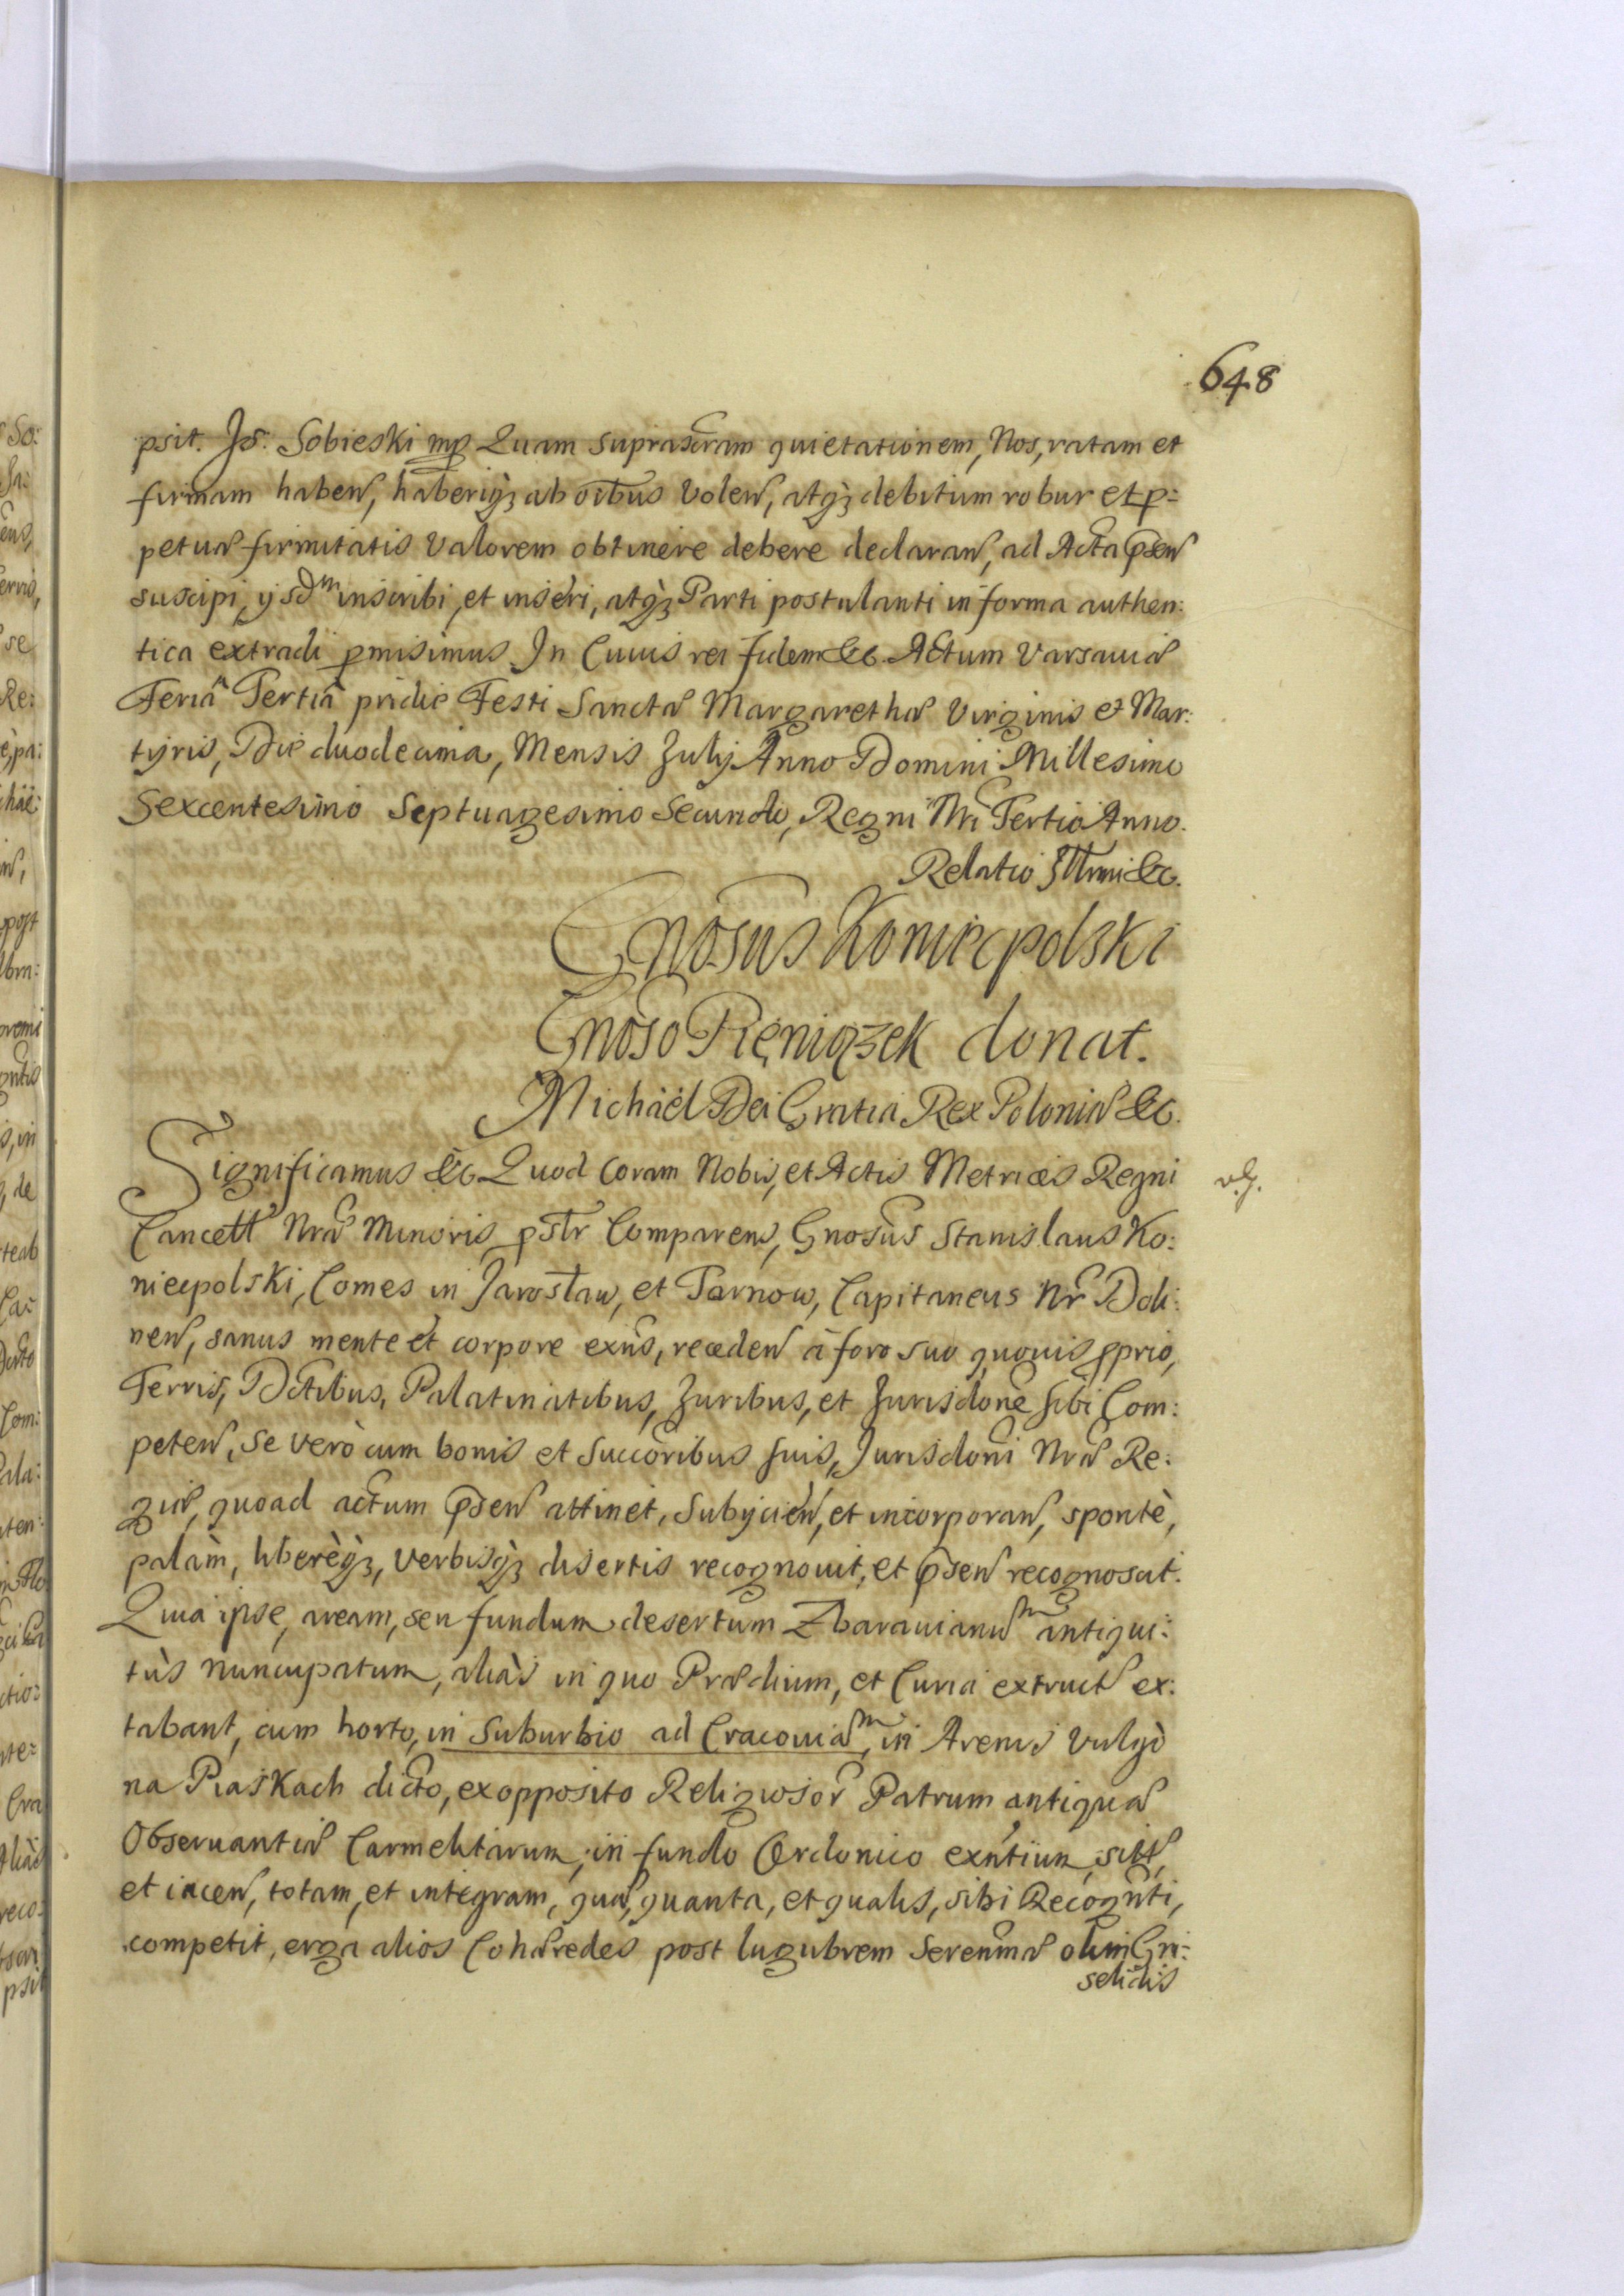 648
psit. Js: Sobieski mp Quam suprascram quietationem, Nos, ratam et
firmam haben, haberiq3 ab oibus volen, atq3 debitum robur et p:
petuæ firmitatis valorem obtinere debere declaran, ad Acta psen
suscipi, ijsdm inscribi, et inseri, atq3 Parti postulanti in forma authen:
tica extradi pmisimus In Cuius rei fidem &c. Actum Varsauiæ
Feriâ Tertiâ pridie Festi Sanctæ Margarethæ Virginis et Mar:
tyris, Die duodecima, Mensis Julij Anno Domini Millesimo
Sexcentesimo Septuagesimo Secundo, Regni Nri Tertio Anno.
Relatio Illrmi &c.
Gnosus Koniecpolski
Gnoso Pieniązek donat.
Michäel Dei Gratia Rex Poloniæ &c.
Significamus &c. Quod coram Nobis, et Actis Metrices Regni
Cancell Nræ Minoris pstr Comparens, Gnosus Stanislaus Ko:
niecpolski, Comes in Jarosław, et Tarnow, Capitaneus Nr Doli:
nen, sanus mente et corpore exns, receden à foro suo quouis pprio,
Terris, Dctibus, Palatinatibus, Juribus, et Jurisdone sibi Com:
peten, se verò cum bonis et succoribus suis, Jurisdoni Nræ Re:
giæ, quoad actum psen attinet, subijcien, et incorporan, spontè,
palàm, liberèq3, verbisq3 disertis recognouit, et psen recognoscit.
Quia ipse, aream, seu fundum desertum Zbarauianum antiqui:
tùs nuncupatum, aliàs in quo Prædium, et Curia extruct ex:
tabant, cum horto, in Suburbio ad Cracouiam, in Arenis vulgò
na Piaskach dicto, ex opposito Religiosor Patrum antiquæ
Obseruantiæ Carmelitarum, in fundo Cerdonico exntium, sitt,
et iacen, totam, et integram, quæ, quanta, et qualis, sibi Recognti,
competit, erga alios Cohæredes post lugubrem Serenmæ olim Gri:
seldis